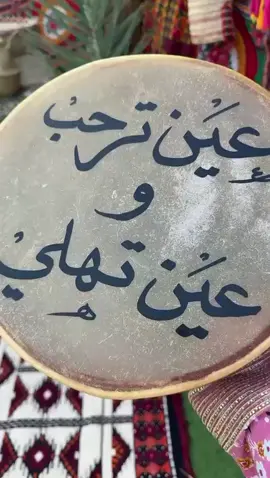 عَين ترحب
و
عَين تهلي